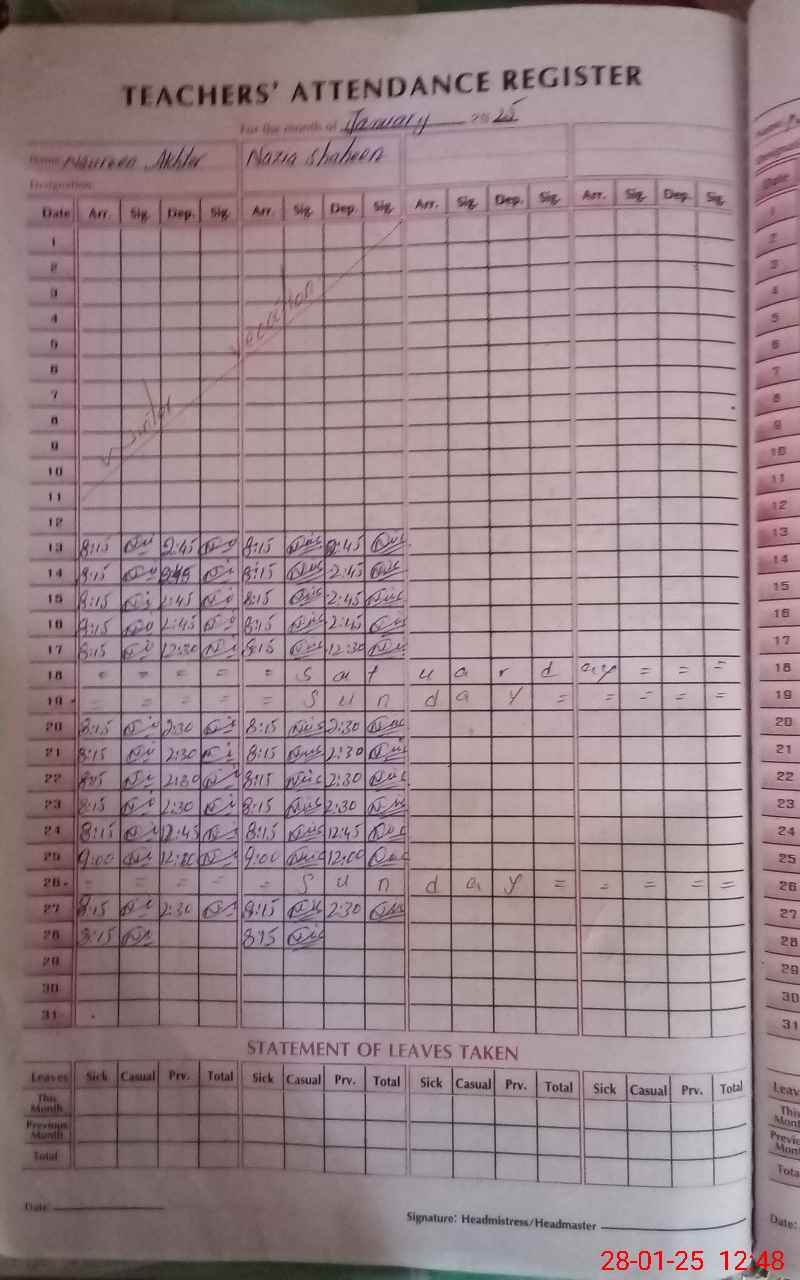 TEACHERS' ATTENDANCE REGISTER
For the month of January 2025
Name: Naureen Akhter Nazia Shaheen
Designation
Date Arr. Sig. Dep. Sig. Arr. Sig. Dep. Sig. Arr. Sig. Dep. Sig. Arr. Sig. Dep. Sig.
1
2
3
4
5
6
7
8
9
10
11
12
Winter Vacation
13 8:15 2:45 8:15 2:45
14 8:15 2:45 8:15 2:45
15 8:15 2:45 8:15 2:45
16 8:15 2:45 8:15 2:45
17 8:15 12:30 8:15 12:30
18 = = = = = S a t u a r d ay = = =
19 = = = = = S u n d a y = = = = =
20 8:15 2:30 8:15 2:30
21 8:15 2:30 8:15 2:30
22 8:15 2:30 8:15 2:30
23 8:15 2:30 8:15 2:30
24 8:15 12:45 8:15 12:45
25 9:00 12:00 9:00 12:00
26 = = = = = S u n d a y = = = = =
27 8:15 2:30 8:15 2:30
28 8:15 8:15
29
30
31
STATEMENT OF LEAVES TAKEN
Leaves Sick Casual Prv. Total Sick Casual Prv. Total Sick Casual Prv. Total Sick Casual Prv. Total
This Month
Previous Month
Total
Date:
Signature: Headmistress/Headmaster
Date
1
2
3
4
5
6
7
8
9
10
11
12
13
14
15
16
17
18
19
20
21
22
23
24
25
26
27
28
29
30
31
Date:
28-01-25 12:48